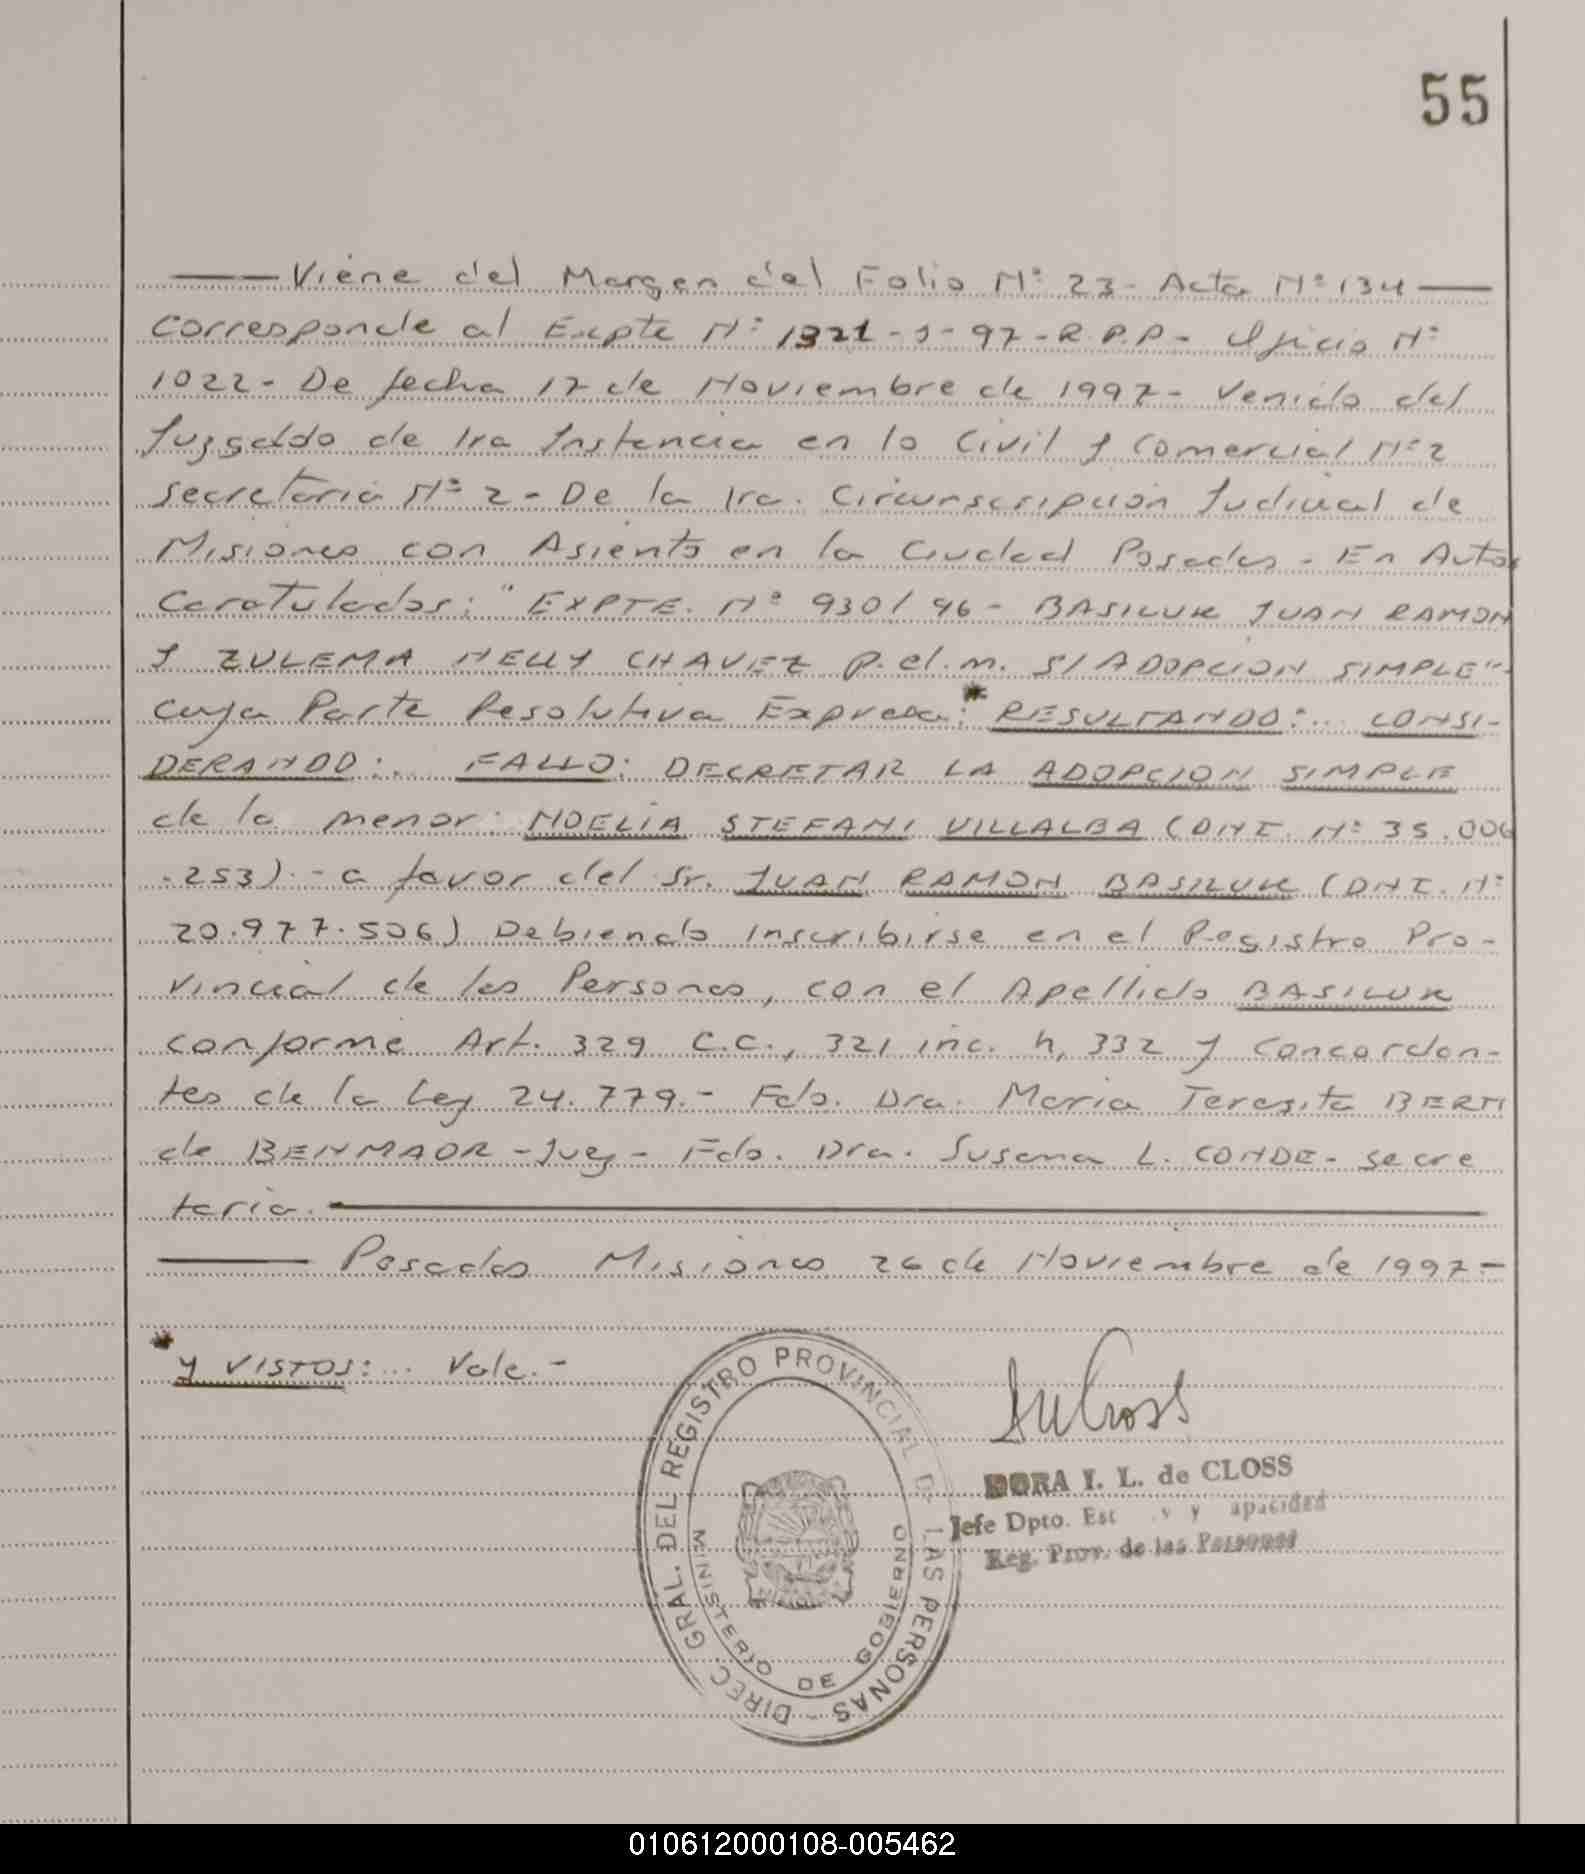 55
Viene del Margen del Folio Nº 23 - Acta Nº 134
Corresponde al Expte Nº 1321 - J - 97 - R.P.P - Oficio Nº
1022 - De fecha 17 de Noviembre de 1997 - Venido del
Juzgaldo de 1ra Instancia en lo Civil y Comercial Nº 2
secretaria Nº 2 - De la 1ra. Circunscripción Judicial de
Misiones con Asiento en la Ciudad Posadas - En Autos
Caratulados: "EXPTE. Nº 930/96 - BASILUK JUAN RAMON
Y ZULEMA NELLY CHAVEZ p.el.m. S/ADOPCION SIMPLE" -
cuya Parte Resolutiva Expresa: * RESULTANDO: ... CONSI-
DERANDO: .. FALLO: DECRETAR LA ADOPCION SIMPLE
de la menor: NOELIA STEFANI VILLALBA (DNI. Nº 35.006
.253) - a favor del Sr. JUAN RAMON BASILUK (DNI. Nº
20.977.506) Debiendo inscribirse en el Registro Pro-
vincial de las Personas, con el Apellido BASILUK
conforme Art. 329 C.C., 321 inc. h, 332 y Concordan-
tes de la Ley 24.779.- Fdo. Dra. Maria Teresita BERTI
de BENMAOR - Juez - Fdo. Dra. Susana L. CONDE - Secre
taria.
Posadas Misiones 26 de Noviembre de 1997 -
* Y VISTOS: ... Vale. -
DIREC. GRAL. DEL REGISTRO PROVINCIAL DE LAS PERSONAS -
MINISTERIO DE GOBIERNO
DORA I. L. de CLOSS
Jefe Dpto. Est y apacidad
Reg. Prov. de las Personas
010612000108-005462